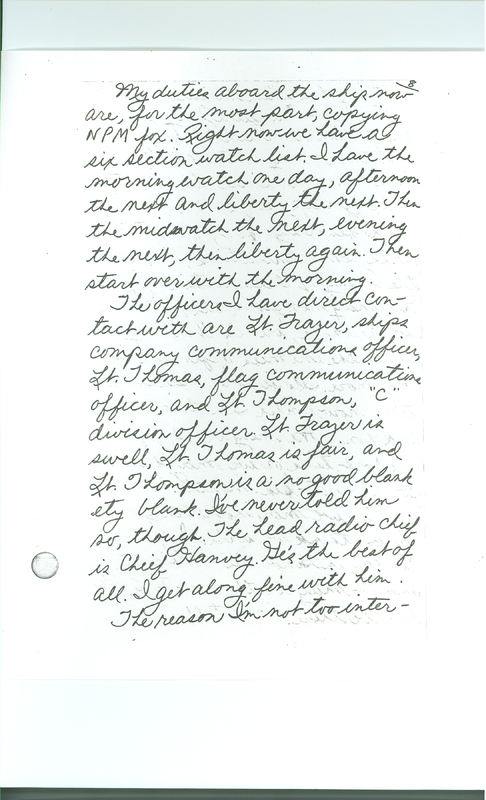 8
My duties aboard the ship now
are, for the most part, copying
NPM fox. Right now we have a
six section watch list. I have the
morning watch one day, afternoon
the next and liberty the next. Then
the midwatch the next, evening
the next, then liberty again. Then
start over with the morning.
The officers I have direct con-
tact with are Lt. Frazer, ships
company communications officer,
Lt. Thomas, flag communications
officer, and Lt. Thompson, "C"
division officer. Lt. Frazer is
swell, Lt. Thomas is fair, and
Lt. Thompson is a no good blank
ety blank. I've never told him
so, though. The head radio chief
is Chief Hanvey. He's the best of
all. I get along fine with him.
The reason I'm not too inter-